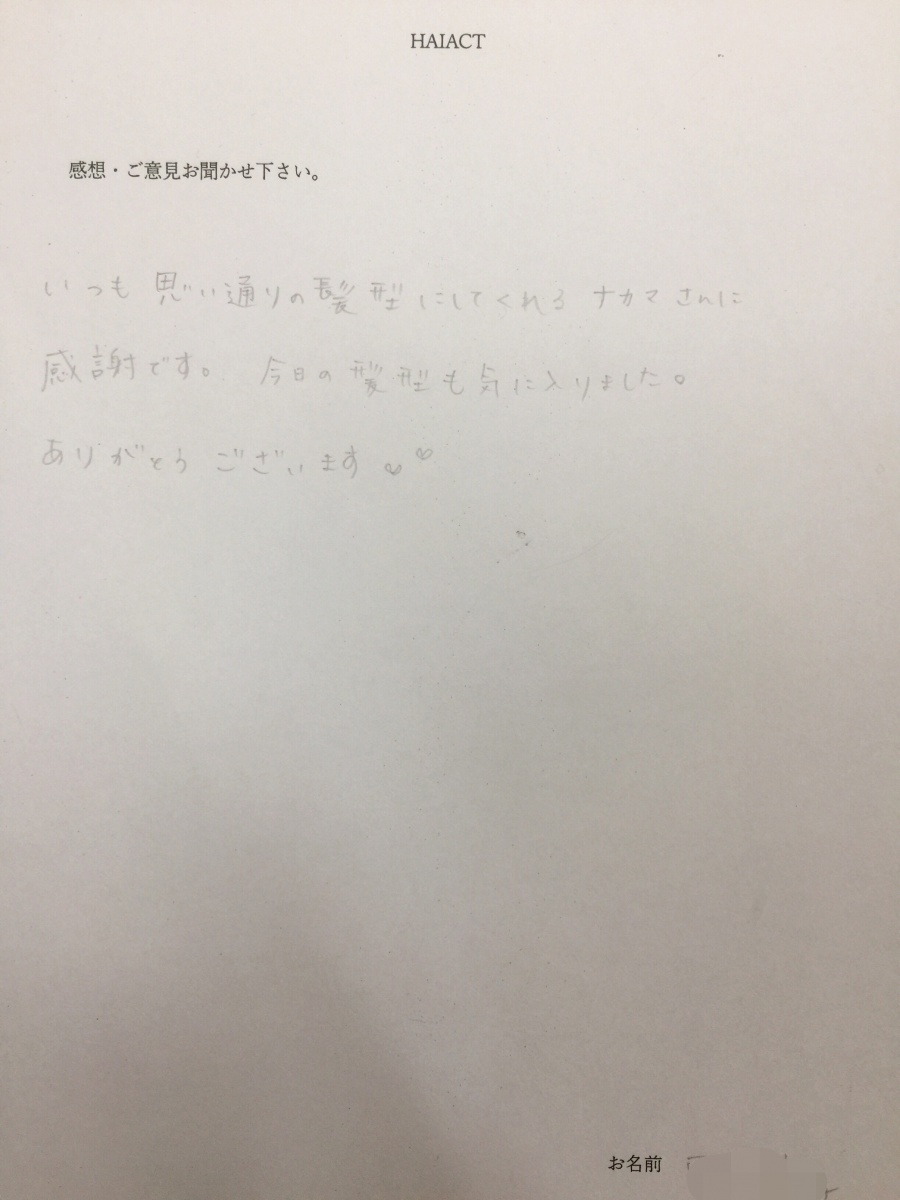 HAIACT
感想・ご意見お聞かせ下さい。
いつも思い通りの髪型にしてくれるナカマさんに
感謝です。 今日の髪型も気に入りました。
ありがとうございます♡♡
お名前